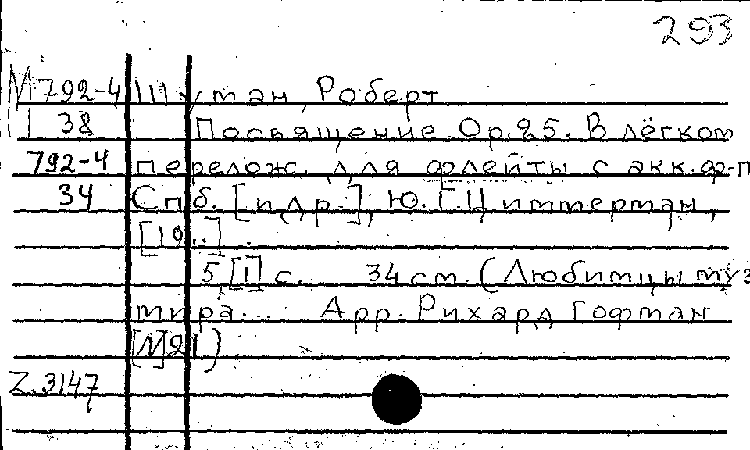 293
М 792-4 Шуман, Роберт
38 Посвящение. Op. 25. В лёгком
792-4 перелож. для флейты с акк. ф-п
34 Спб. [и др.], Ю. Г. Циммерман,
[19..].
5, [1] с. 34 см. (Любимцы муз
мира... Арр. Рихард Гофман
[N]21.)
Z.3147